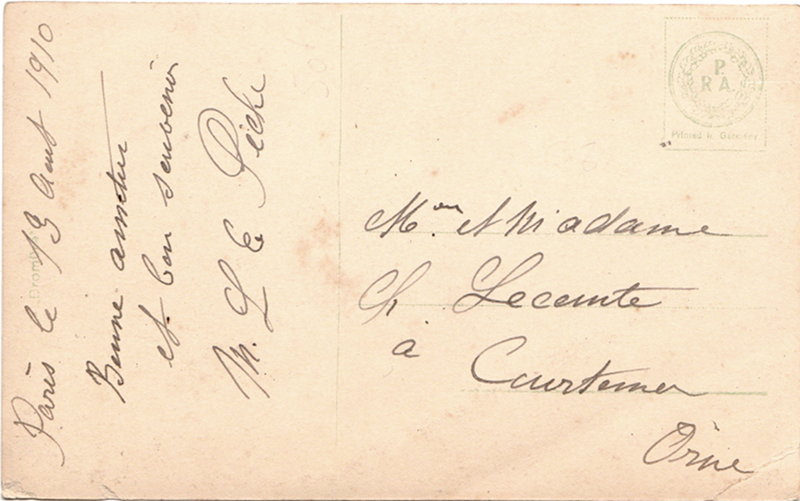 Paris le 19 Aout 1910
Bonne amitier
et bon souvenir
M. L Le Piche
P.
R A.
Printed in Germany
Mon et Madame
Ch Lecomte
a
Courtomer
Orne